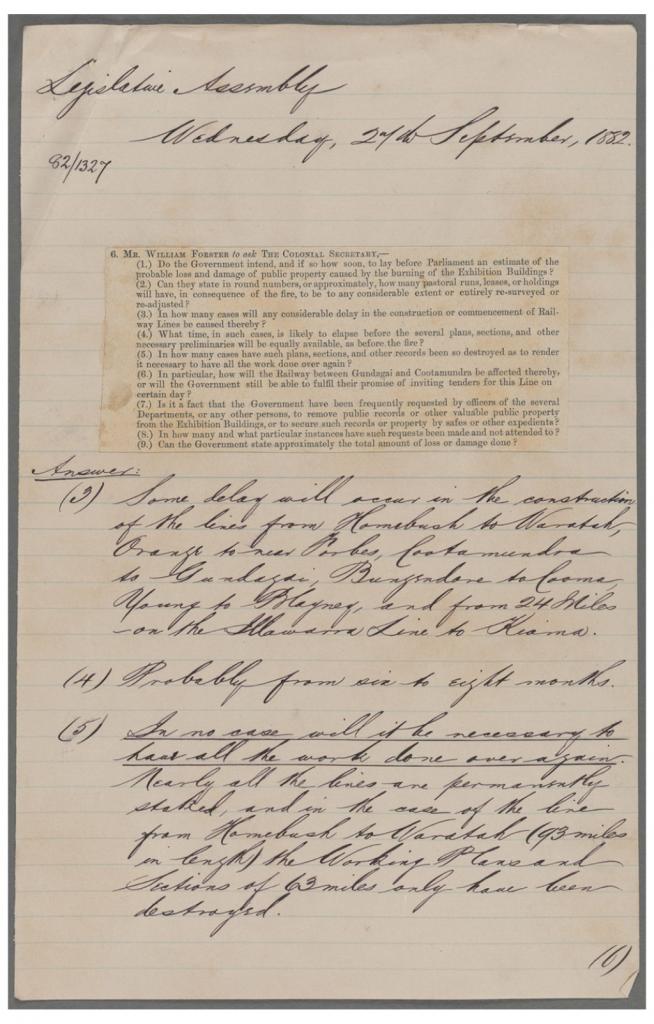 Legislative Assembly
Wednesday, September, 1882.
82/1327
6. MR. WILLIAM FORSTER to ask THE COLONIAL SECRETARY,—
(1.) Do the Government intend, and if so how soon, to lay before Parliament an estimate of the
probable loss and damage of public property caused by the burning of the Exhibition Buildings?
(2.) Can they state in round numbers, or approximately, how many pastoral runs, leases, or holdings
will have, in consequence of the fire, to be to any considerable extent or entirely re-surveyed or
re-adjusted?
(3.) In how many cases will any considerable delay in the construction or commencement of Rail-
way Lines be caused thereby?
(4.) What time, in such cases, is likely to elapse before the several plans, sections, and other
necessary preliminaries will be equally available, as before the fire?
(5.) In how many cases have such plans, sections, and other records been so destroyed as to render
it necessary to have all the work done over again?
(6.) In particular, how will the Railway between Gundagai and Cootamundra be affected thereby,
or will the Government still be able to fulfil their promise of inviting tenders for this Line on
certain day?
(7.) Is it a fact that the Government have been frequently requested by officers of the several
Departments, or any other persons, to remove public records or other valuable public property
from the Exhibition Buildings, or to secure such records or property by safes or other expedients?
(8.) In how many and what particular instances have such requests been made and not attended to?
(9.) Can the Government state approximately the total amount of loss or damage done?
Answer:
(3) Some delay will occur in the construction
of the lines from Homebush to Waratah,
Orange to near Forbes, Cootamundra
to Gundagai, Bungendore to Cooma,
Young to Blayney, and from 24 Miles
on the Illawarra Line to Kiama.
(4) Probably from six to eight months.
(5) In no case will it be necessary to
have all the work done over again.
Nearly all the lines are permanently
staked, and in the case of the line
from Homebush to Waratah (93 miles
in length) the Working Plans and
Sections of 63 miles only have been
destroyed.
(6)